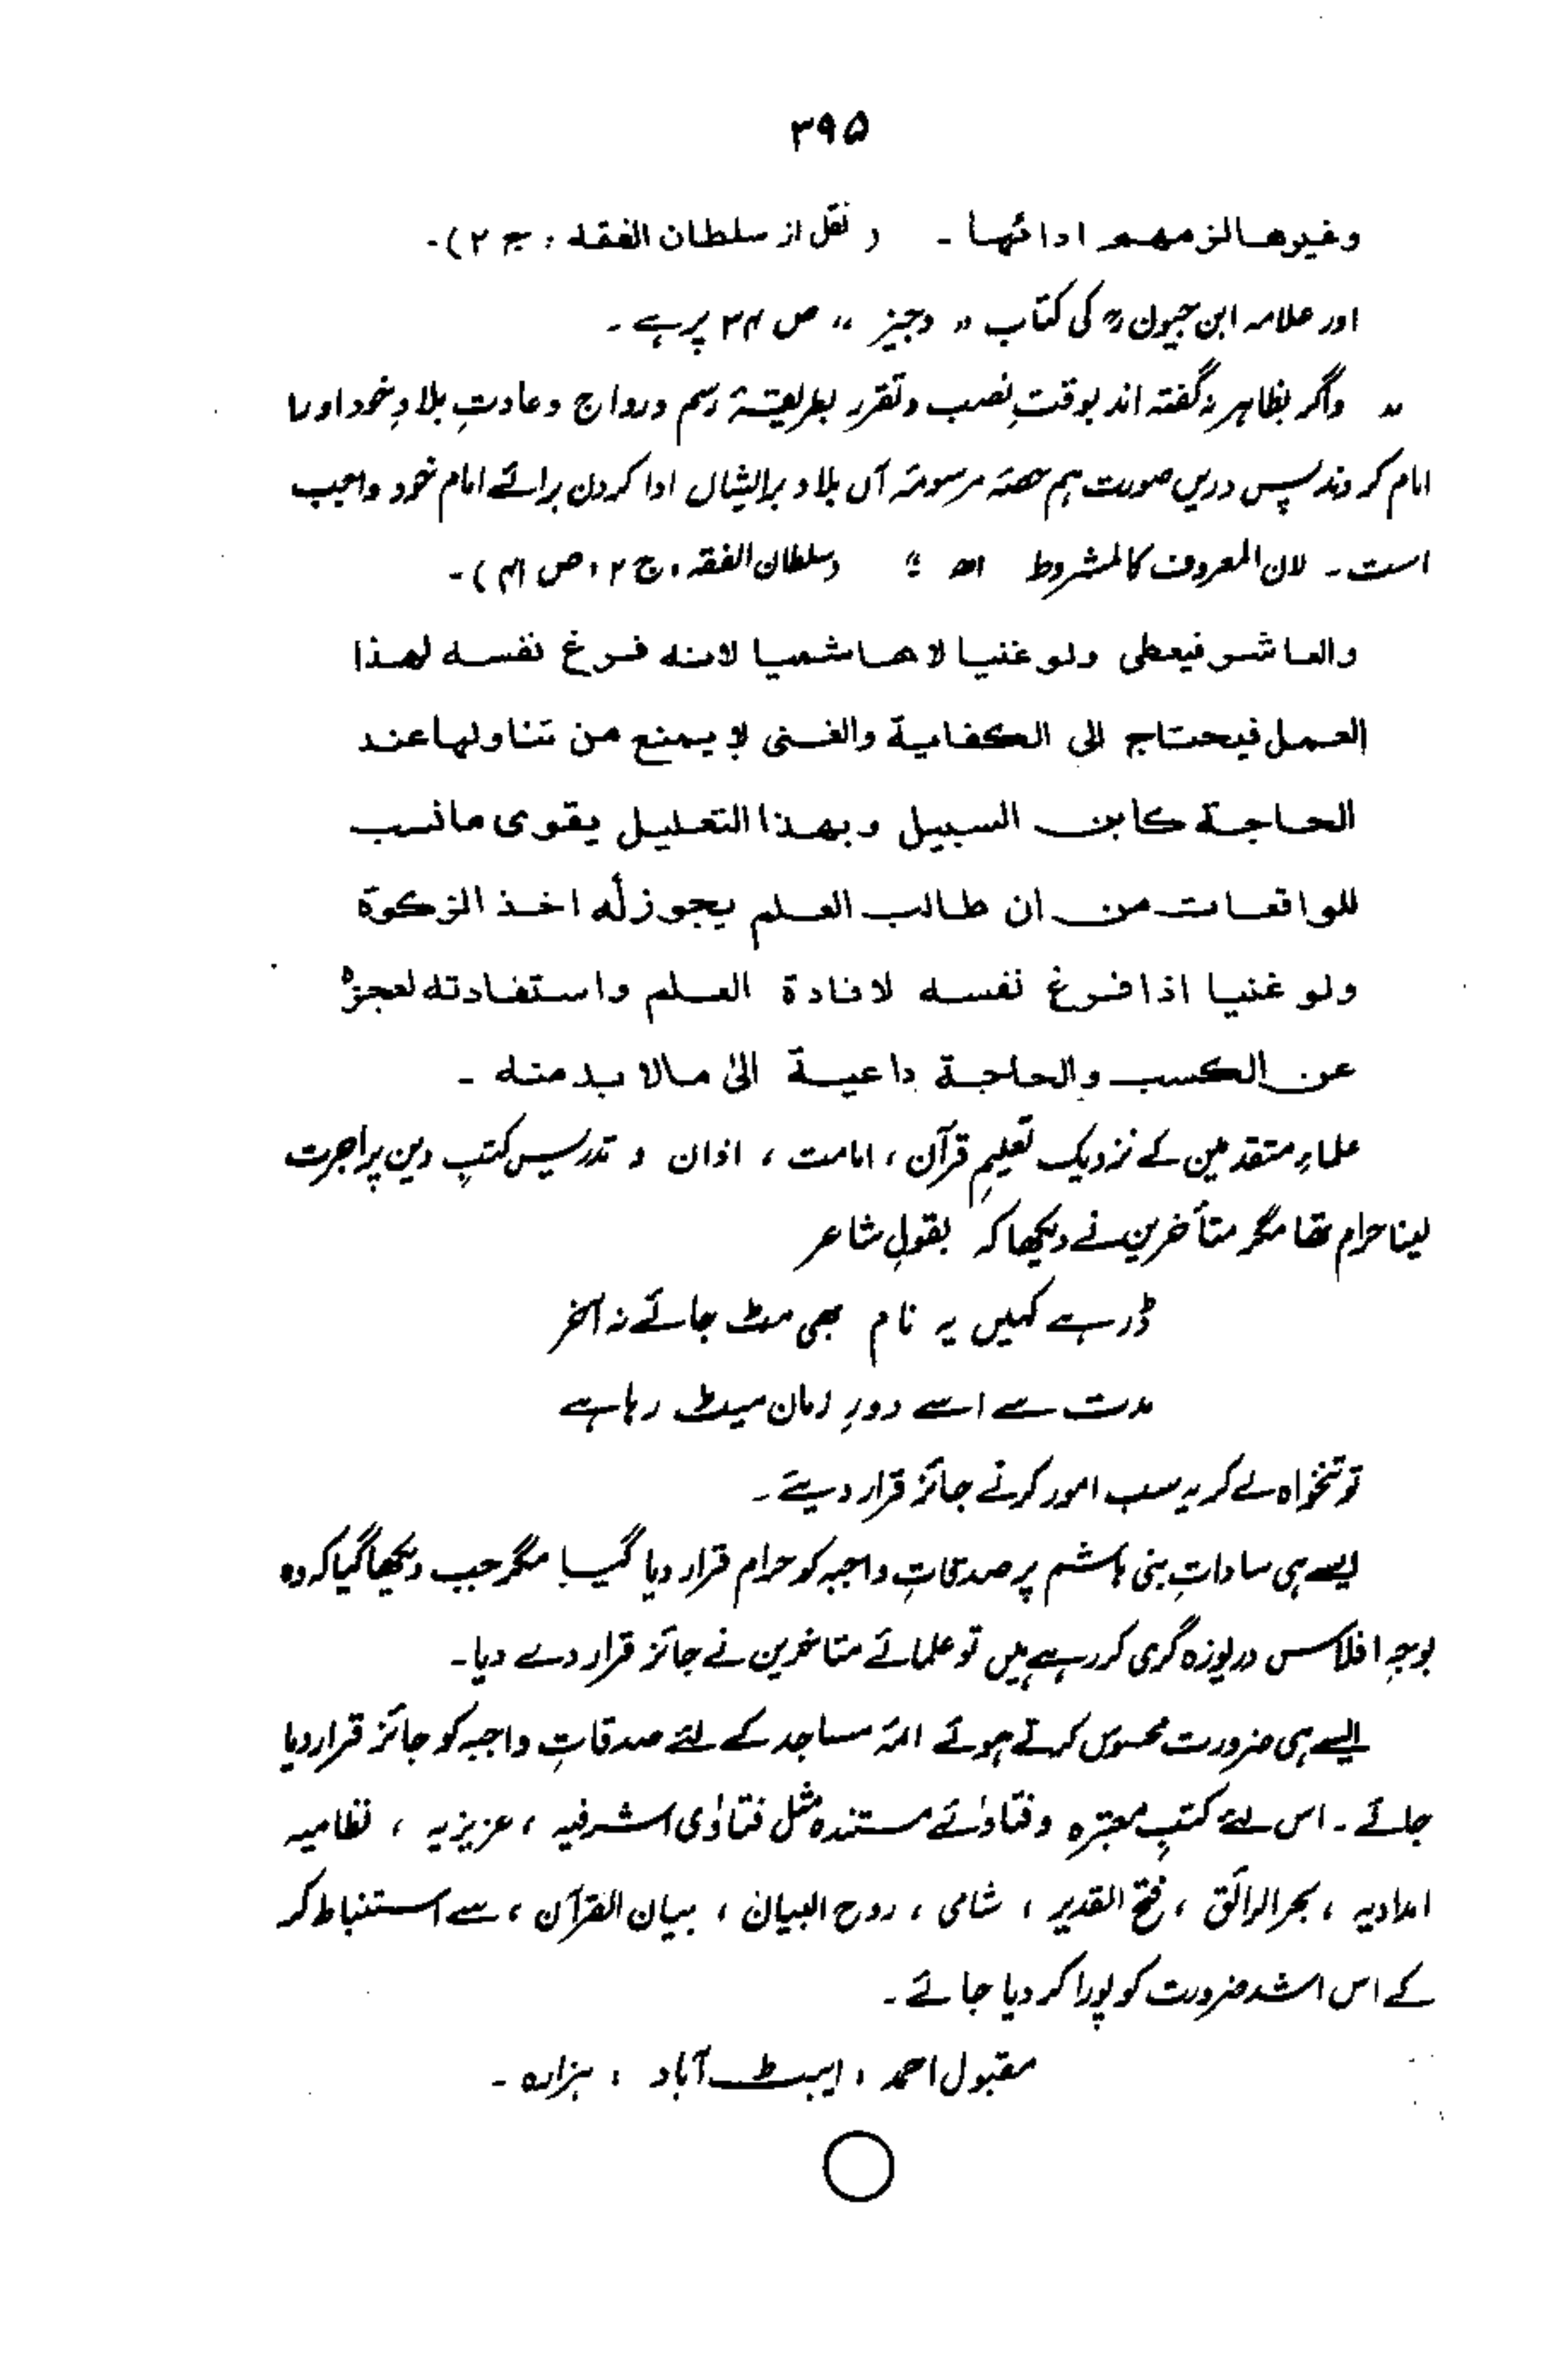 ۳۹۵
وغیرھا لزمھم ادائھا ۔ (نقل از سلطان الفقہ، ج ۲)۔
اور علامہ ابن جیونؒ کی کتاب " وجیز " ص پر ہے ۔
" واگر بظاہر نہ گفتہ اند بوقتِ نصب وتقرر بطریقۂ رسم و رواج و عادتِ بلادِ خود او را
امام کردند پس دریں صورت ہم حصۂ مرسومۂ آں بلاد برایشاں ادا کردن برائے امام خود واجب
است ۔ لان المعروف کالمشروط اھ " (سلطان الفقہ، ج ۲، ص ۴۱)۔
والعاشر فیعطی ولو غنیا لا ھاشمیا لانہ فرغ نفسہ لھذا
العمل فیحتاج الی الکفایة والغنی لا یمنع من تناولھا عند
الحاجة کابن السبیل وبھذا التعلیل یقوی ما نسب
للواقعات من ان طالب العلم یجوز لہ اخذ الزکوة
ولو غنیا اذا فرغ نفسہ لافادة العلم واستفادتہ لعجزہ
عن الکسب والحاجة داعیة الیٰ مالا بد منہ ۔
علماءِ متقدمین کے نزدیک تعلیمِ قرآن ، امامت ، اذان و تدریس کتبِ دین پر اجرت
لینا حرام تھا مگر متأخرین نے دیکھا کہ بقولِ شاعر
ڈر ہے کہیں یہ نام بھی مٹ جائے نہ آخر
مدت سے اسے دورِ زمان میٹ رہا ہے
تو تنخواہ لے کر یہ سب امور کرنے جائز قرار دیئے ۔
ایسے ہی ساداتِ بنی ہاشم پر صدقاتِ واجبہ کو حرام قرار دیا گیا مگر جب دیکھا گیا کہ وہ
بوجہِ افلاس دریوزہ گری کر رہے ہیں تو علمائے متاخرین نے جائز قرار دے دیا۔
ایسے ہی ضرورت محسوس کرتے ہوئے ائمۂ مساجد کے لئے صدقاتِ واجبہ کو جائز قرار دیا
جائے ۔ اس لئے کتبِ معتبرہ و فتاوٰئے مستندہ مثل فتاوٰی اشرفیہ ، عزیزیہ ، نظامیہ
امدادیہ ، بحر الرائق ، فتح القدیر ، شامی ، روح البیان ، بیان القرآن ، سے استنباط کر
کے اس اشد ضرورت کو پورا کر دیا جائے ۔
مقبول احمد ، ایبٹ آباد ، ہزارہ ۔